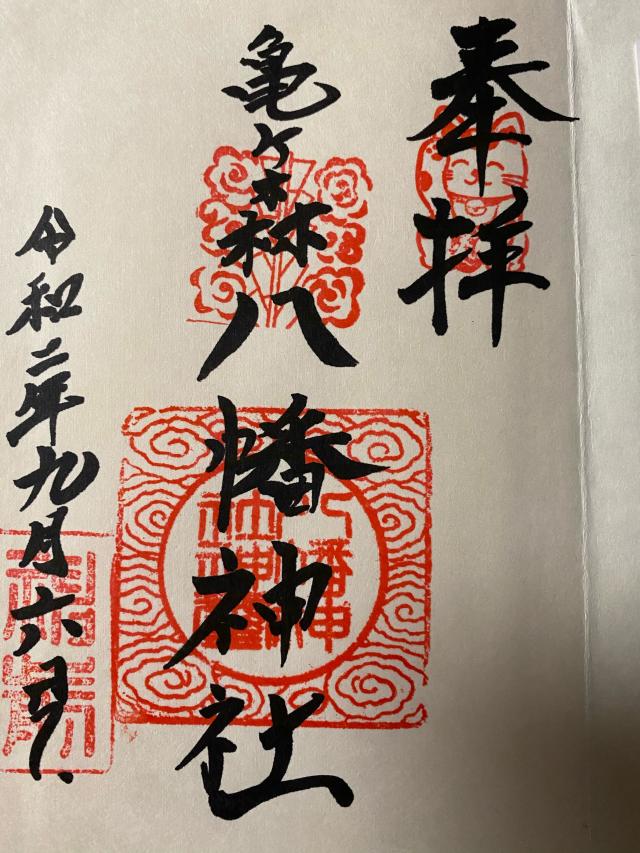 奉拝
亀ヶ森八幡神社
令和二年九月六日